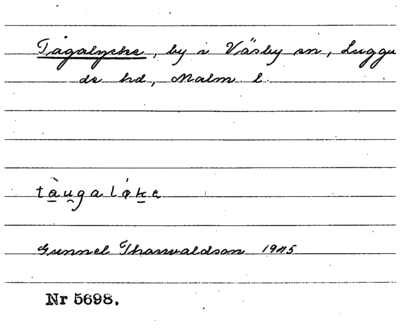 Tågalycke, by i Väsby sn, Luggu
de hd, Malm l.
tàu̯galỳke
Gunnel Thorvaldson 1945
Nr 5698.